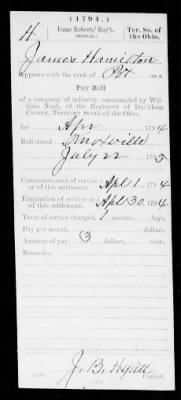 (1794.)
H Isaac Roberts' Reg't. Ter. So. of
(MILITIA.) the Ohio.
James Hamilton
Appears with the rank of Pvt on a
Pay Roll
of a company of infantry, commanded by Wil-
liam Nash, of the Regiment of Davidson
County, Territory South of the Ohio,
for Apr , 1794.
Roll dated Knoxville
July 22 , 1795
Commencement of service
or of this settlement. Apl 1 , 1794
Expiration of service or
of this settlement. Apl 30, 1794
Term of service charged, 1 months, days.
Pay per month, dollars.
Amount of pay, 3 dollars
Remarks:
J. B. Hyatt
Copyist.